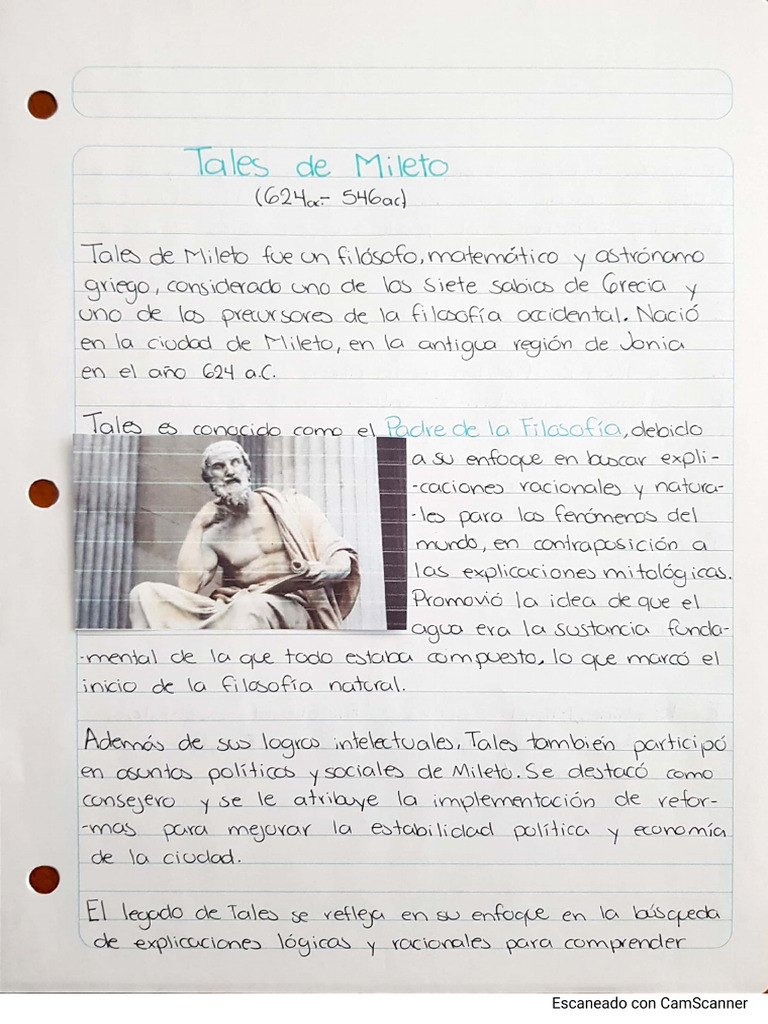 Tales de Mileto
(624a.- 546ac)
Tales de Mileto fue un filósofo, matemático y astrónomo
griego, considerado uno de los siete sabios de Grecia y
uno de los precursores de la filosofía occidental. Nació
en la ciudad de Mileto, en la antigua región de Jonia
en el año 624 a.C.
Tales es conocido como el Padre de la Filosofía, debido
a su enfoque en buscar expli-
-caciones racionales y natura-
-les para los fenómenos del
mundo, en contraposición a
las explicaciones mitológicas.
Promovió la idea de que el
agua era la sustancia funda-
-mental de la que todo estaba compuesto, lo que marcó el
inicio de la filosofía natural.
Además de sus logros intelectuales, Tales también participó
en asuntos políticos y sociales de Mileto. Se destacó como
consejero y se le atribuye la implementación de refor-
-mas para mejorar la estabilidad política y economía
de la ciudad.
El legado de Tales se refleja en su enfoque en la búsqueda
de explicaciones lógicas y racionales para comprender
Escaneado con CamScanner